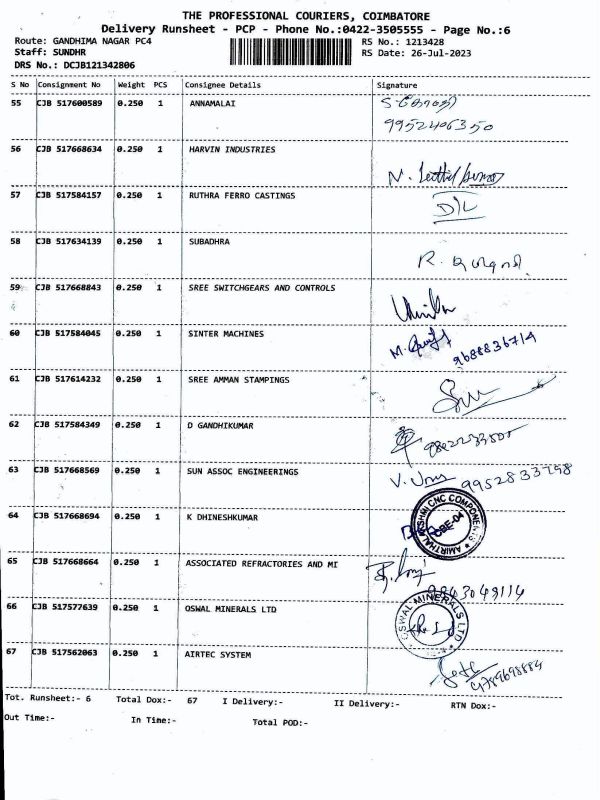 THE PROFESSIONAL COURIERS, COIMBATORE
Delivery Runsheet - PCP - Phone No.:0422-3505555 - Page No.:6
Route: GANDHIMA NAGAR PC4 RS No.: 1213428
Staff: SUNDHR RS Date: 26-Jul-2023
DRS No.: DCJB121342806
S No Consignment No Weight PCS Consignee Details Signature
55 CJB 517600589 0.250 1 ANNAMALAI
9952406350
56 CJB 517668634 0.250 1 HARVIN INDUSTRIES
57 CJB 517584157 0.250 1 RUTHRA FERRO CASTINGS
58 CJB 517634139 0.250 1 SUBADHRA
59 CJB 517668843 0.250 1 SREE SWITCHGEARS AND CONTROLS
60 CJB 517584045 0.250 1 SINTER MACHINES
9688836714
61 CJB 517614232 0.250 1 SREE AMMAN STAMPINGS
62 CJB 517584349 0.250 1 D GANDHIKUMAR
63 CJB 517668569 0.250 1 SUN ASSOC ENGINEERINGS
9952833758
64 CJB 517668694 0.250 1 K DHINESHKUMAR
AMIRTHALAKSHMI CNC COMPONENTS
CBE-04
65 CJB 517668664 0.250 1 ASSOCIATED REFRACTORIES AND MI
66 CJB 517577639 0.250 1 OSWAL MINERALS LTD
OSWAL MINERALS LTD
67 CJB 517562063 0.250 1 AIRTEC SYSTEM
9789698884
Tot. Runsheet:- 6 Total Dox:- 67 I Delivery:- II Delivery:- RTN Dox:-
Out Time:- In Time:- Total POD:-